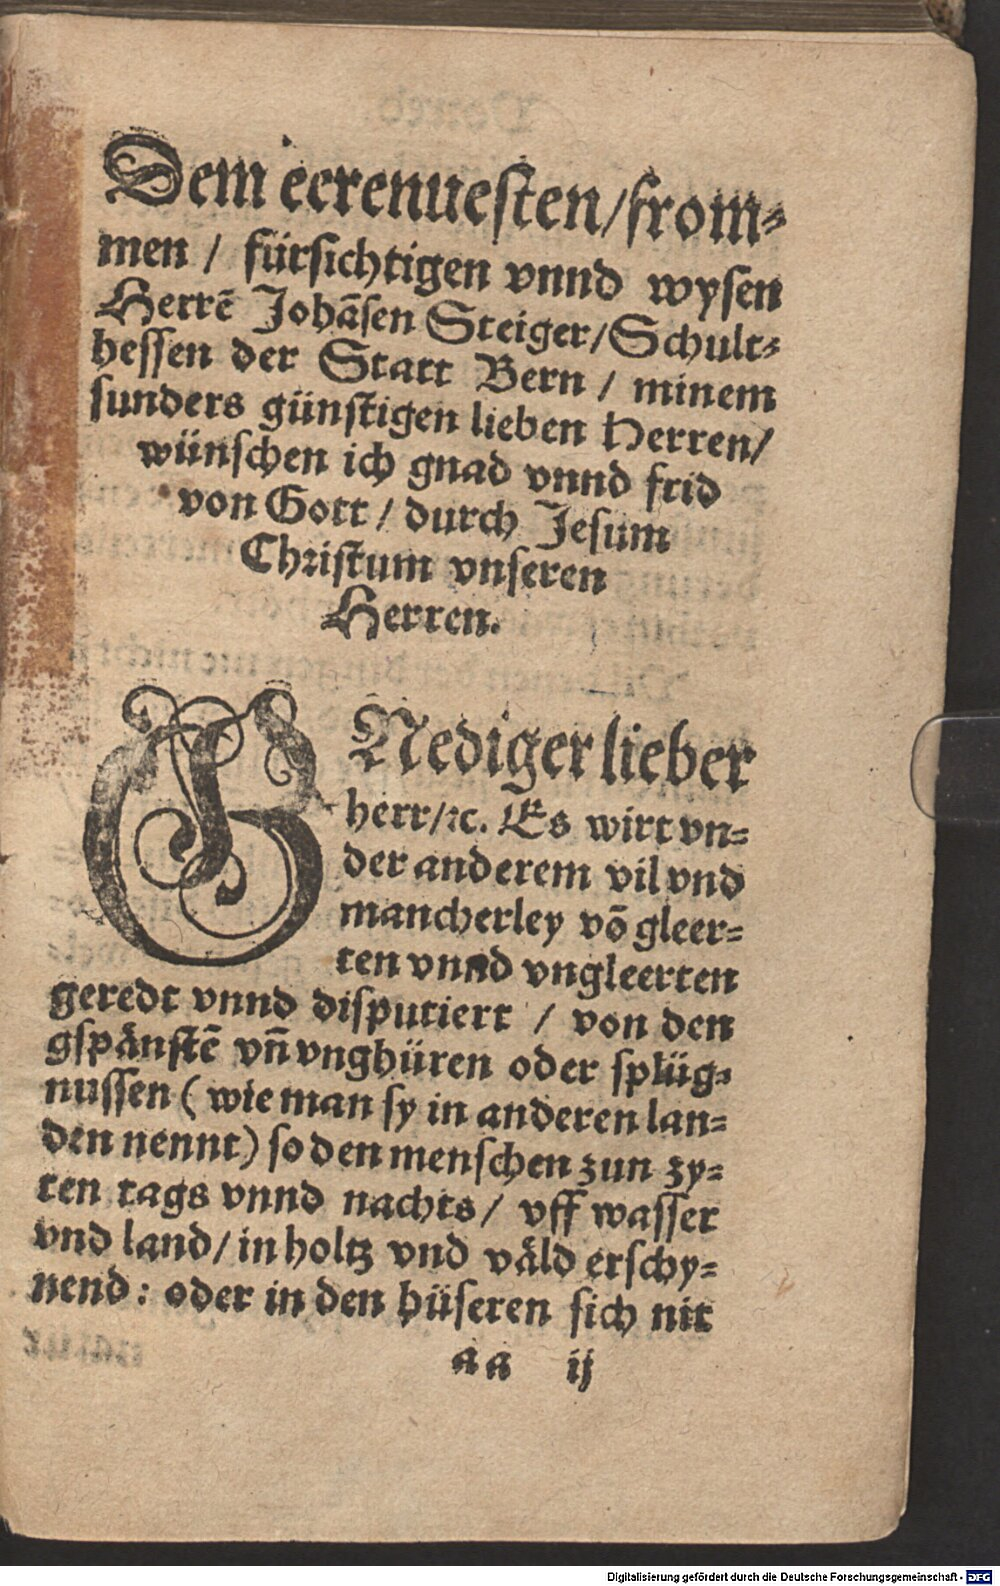 Dem eerenuesten/from⸗
men / fürsichtigen vnnd wysen
Herrē Johāsen Steiger/Schult⸗
hessen der Statt Bern / minem
sunders günstigen lieben Herren/
wünschen ich gnad vnnd frid
von Gott / durch Jesum
Christum vnseren
Herren.
GNediger lieber
herr/ꝛc. Es wirt vn⸗
der anderem vil vnd
mancherley vō gleer⸗
ten vnnd vngleerten
geredt vnnd disputiert / von den
gspaͤnstē vn̄ vnghüren oder splüg⸗
nussen (wie man sy in anderen lan⸗
den nennt) so den menschen zun zy⸗
ten tags vnnd nachts/ vff wasser
vnd land/ in holtz vnd vaͤld erschy⸗
nend: oder in den hüseren sich nit
aa ij
Digitalisierung gefördert durch die Deutsche Forschungsgemeinschaft - DFG